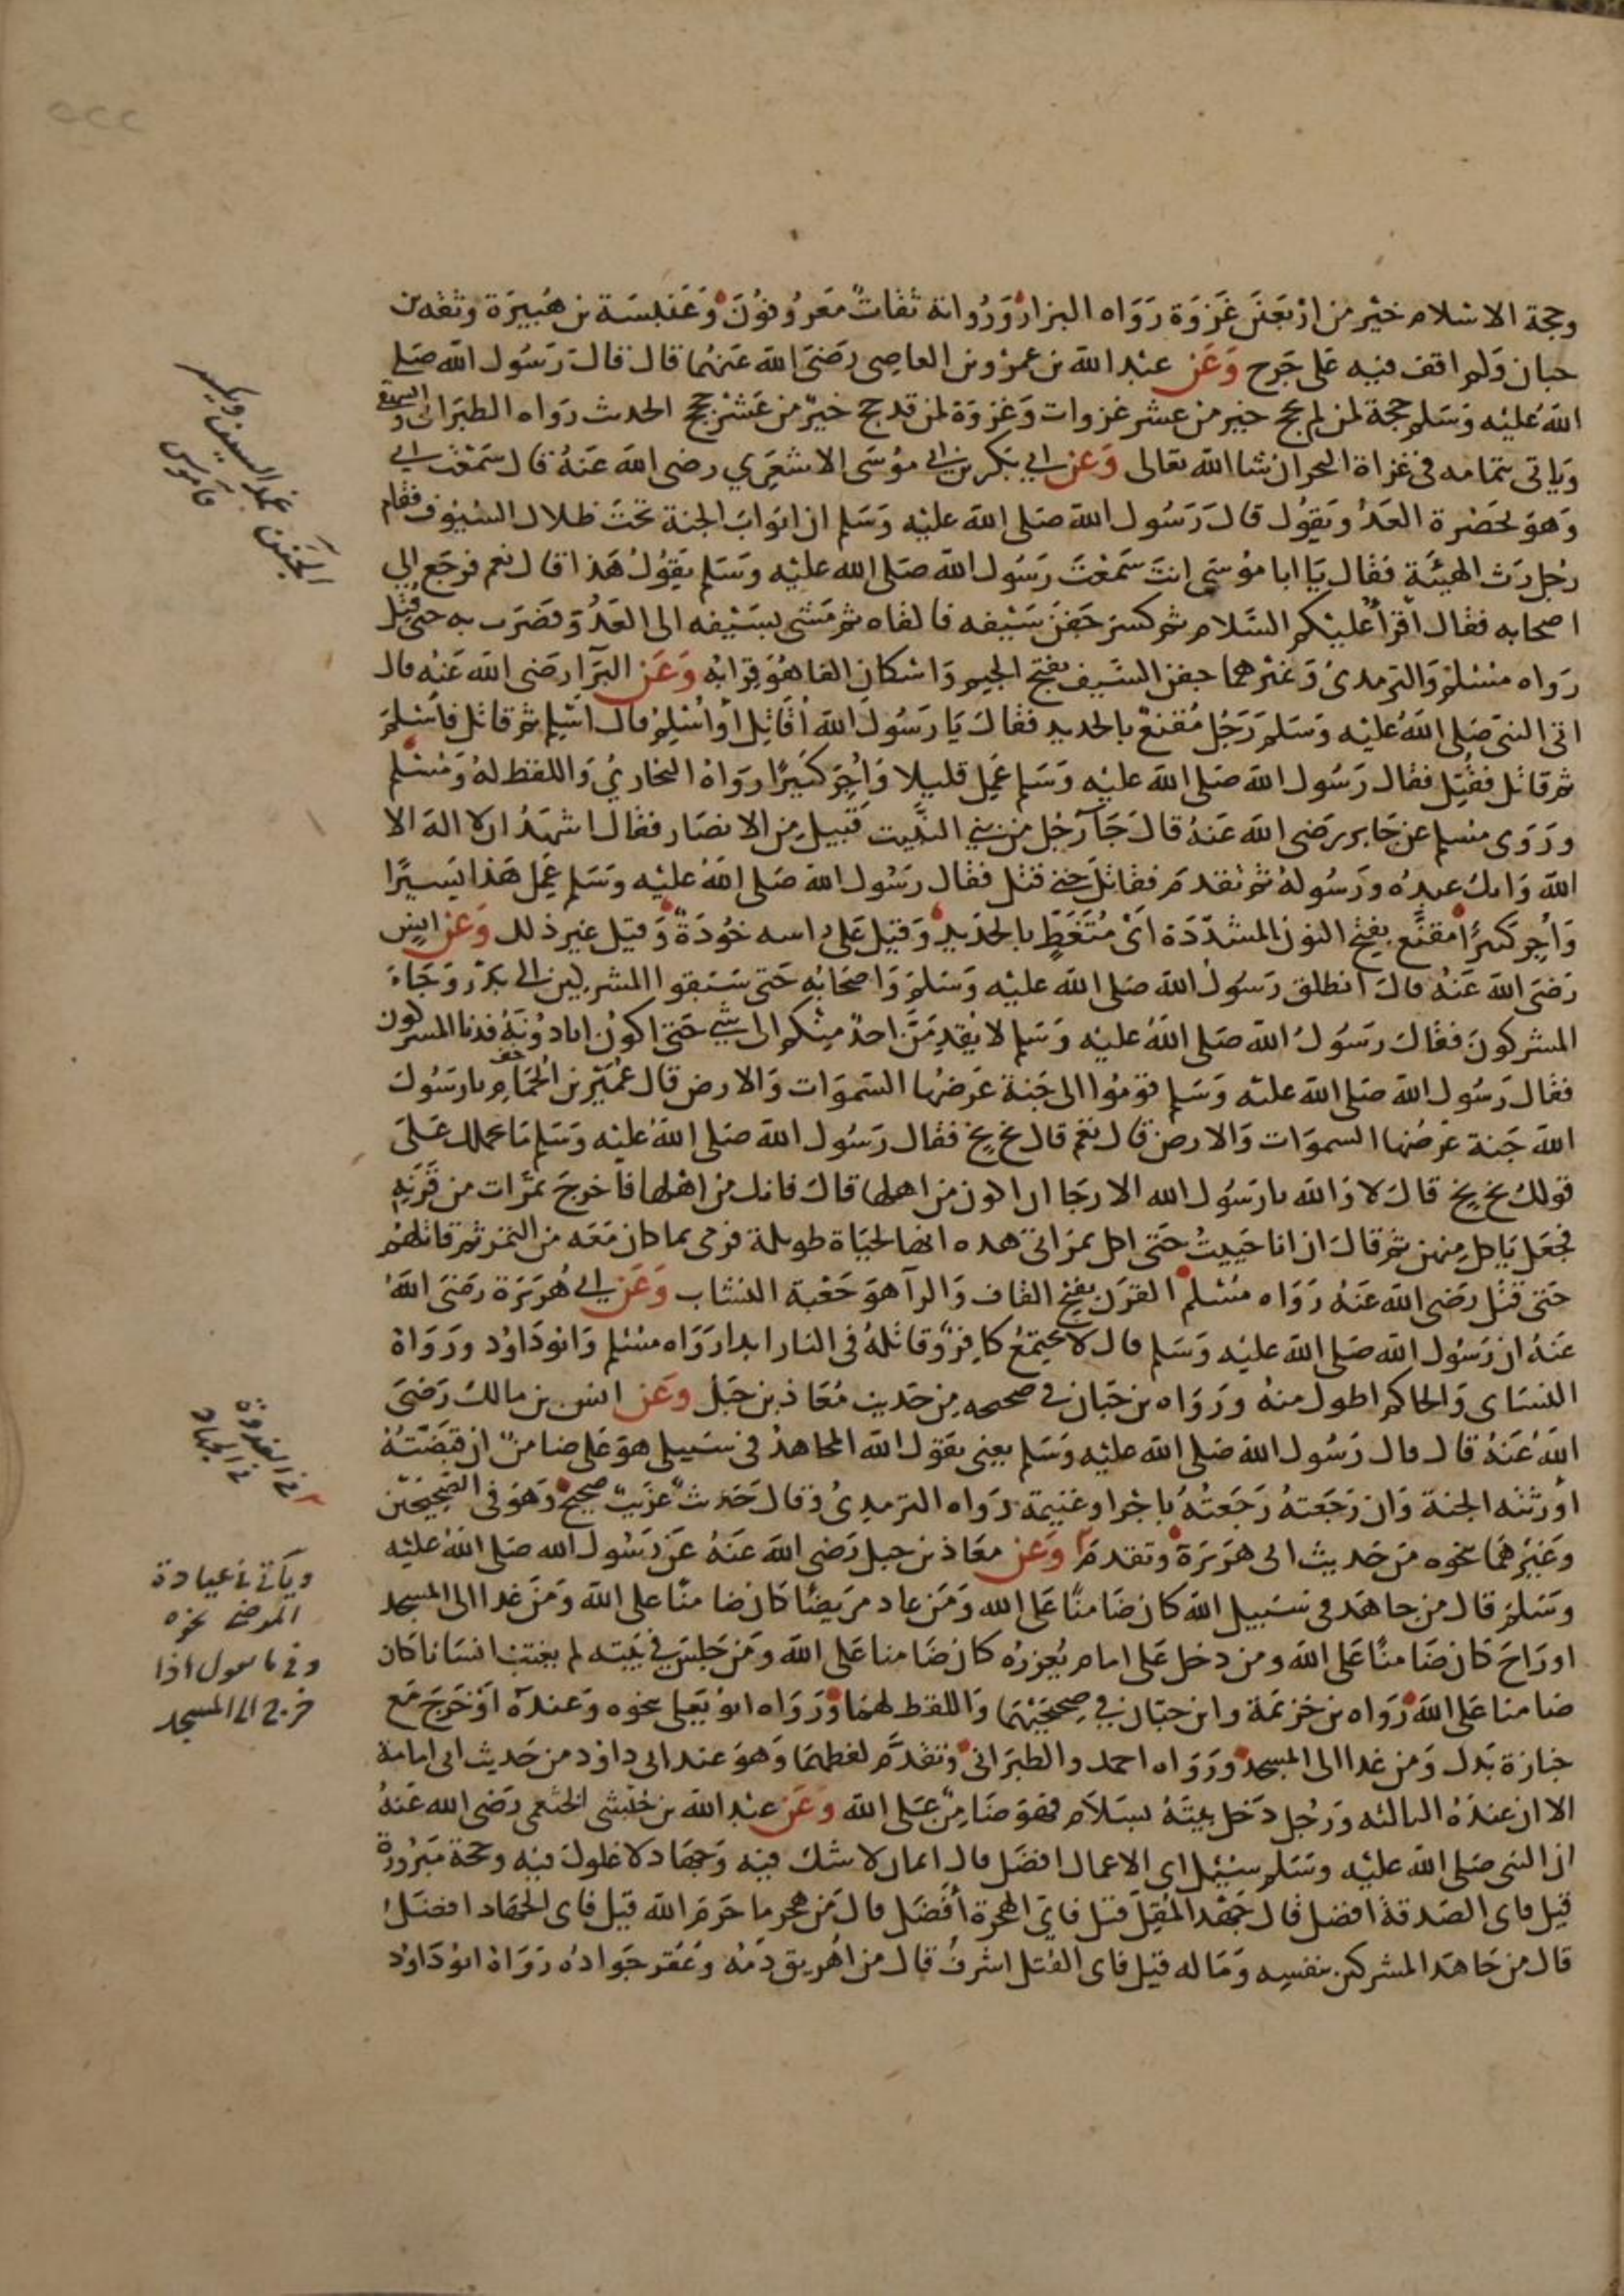 وحجة الاسلام خير من اربعين غزوة رواه البزار ورواته ثقات معروفون وعنبسة بن هبيرة وثقه بن
حبان ولم اقف فيه على جرح وعن عبد الله بن عمرو بن العاصى رضى الله عنهما قال قال رسول الله صلى
الله عليه وسلم حجة لمن لم يحج خير من عشر غزوات وغزوة لمن قد حج خير من عشر حجج الحديث رواه الطبرانى والبيهقى
وياتى بتمامه فى غزاة البحر ان شا الله تعالى وعن ابي بكر بن ابي موسى الاشعري رضى الله عنه قال سمعت ابي
وهو بحضرة العدو يقول قال رسول الله صلى الله عليه وسلم ان ابواب الجنة تحت ظلال السيوف فقام
رجل رث الهيئة فقال يا ابا موسى انت سمعت رسول الله صلى الله عليه وسلم يقول هذا قال نعم فرجع الي
اصحابه فقال اقرأ عليكم السلام ثم كسر جفن سيفه فالقاه ثم مشى بسيفه الى العدو فضرب به حتى قتل
رواه مسلم والترمدى وغيرهما جفن السيف بفتح الجيم واسكان الفا هو قرابه وعن البرآ رضى الله عنه قال
اتى النبى صلى الله عليه وسلم رجل مقنع بالحديد فقال يا رسول الله أقاتل أو أسلم قال اسلم ثم قاتل فاسلم
ثم قاتل فقتل فقال رسول الله صلى الله عليه وسلم عمل قليلا وأجر كثيرا رواه البخاري واللفظ له ومسلم
وروى مسلم عن جابر رضى الله عنه قال جآ رجل من بني النبيت قبيل من الانصار فقال اشهد ان لا اله الا
الله وانك عبده ورسوله ثم تقدم فقاتل حتى قتل فقال رسول الله صلى الله عليه وسلم عمل هذا يسيرا
وأجر كثيرا مقنع بفتح النون المشددة اى متغط بالحديد وقيل على راسه خودة وقيل غير ذلك وعن انس
رضى الله عنه قال انطلق رسول الله صلى الله عليه وسلم واصحابه حتى سبقوا المشركين الى بدر وجاء
المشركون فقال رسول الله صلى الله عليه وسلم لا يقدمن احد منكم الى شي حتى اكون انا دونه فدنا المشركون
فقال رسول الله صلى الله عليه وسلم قوموا الى جنة عرضها السموات والارض قال عمير بن الحمام يا رسول
الله جنة عرضها السموات والارض قال نعم قال بخ بخ فقال رسول الله صلى الله عليه وسلم ما يحملك على
قولك بخ بخ قال لا والله يا رسول الله الا رجا ان اكون من اهلها قال فانك من اهلها فأخرج تمرات من قرنه
فجعل ياكل منهن ثم قال ان انا حييت حتى اكل تمراتى هذه انها لحياة طويلة فرمى بما كان معه من التمر ثم قاتلهم
حتى قتل رضى الله عنه رواه مسلم القرن بفتح القاف والرآ هو جعبة النشاب وعن ابي هريرة رضى الله
عنه ان رسول الله صلى الله عليه وسلم قال لا يجتمع كافر وقاتله فى النار ابدا رواه مسلم وابو داود ورواه
النساى والحاكم اطول منه ورواه بن حبان في صحيحه من حديث معاذ بن جبل وعن انس بن مالك رضى
الله عنه قال قال رسول الله صلى الله عليه وسلم يعنى يقول الله المجاهد فى سبيلى هو على ضامن ان قبضته
أورثته الجنة وان رجعته رجعته باجر او غنيمة رواه الترمدى وقال حديث غريب صحيح وهو فى الصحيحين
وغيرهما بنحوه من حديث ابى هريرة وتقدم وعن معاذ بن جبل رضى الله عنه عن رسول الله صلى الله عليه
وسلم قال من جاهد فى سبيل الله كان ضامنا على الله ومن عاد مريضا كان ضامنا على الله ومن غدا الى المسجد
او راح كان ضامنا على الله ومن دخل على امام يعزره كان ضامنا على الله ومن جلس في بيته لم يغتب انسانا كان
ضامنا على الله رواه بن خزيمة وابن حبان في صحيحيهما واللفظ لهما ورواه ابو يعلى بنحوه وعنده او خرج مع
جنازة بدل ومن غدا الى المسجد ورواه احمد والطبرانى وتقدم لفظهما وهو عند ابى داود من حديث ابى امامة
الا ان عنده الثالثه ورجل دخل بيته بسلام فهو ضامن على الله وعن عبد الله بن حبشى الخثعمى رضى الله عنه
ان النبى صلى الله عليه وسلم سئل اى الاعمال افضل قال ايمان لا شك فيه وجهاد لا غلول فيه وحجة مبرورة
قيل فاى الصدقة افضل قال جهد المقل قيل فاى الهجرة أفضل قال من هجر ما حرم الله قيل فاى الجهاد افضل
قال من جاهد المشركين بنفسه وماله قيل فاى القتل اشرف قال من أهريق دمه وعقر جواده رواه ابو داود
الجفن غمد السيف ويكسر
قاموس
فى الغدوة
فى الجهاد
ويأتى فى عيادة
المرضى نحوه
وفى ما يقول اذا
خرج الى المسجد
٥٢٢